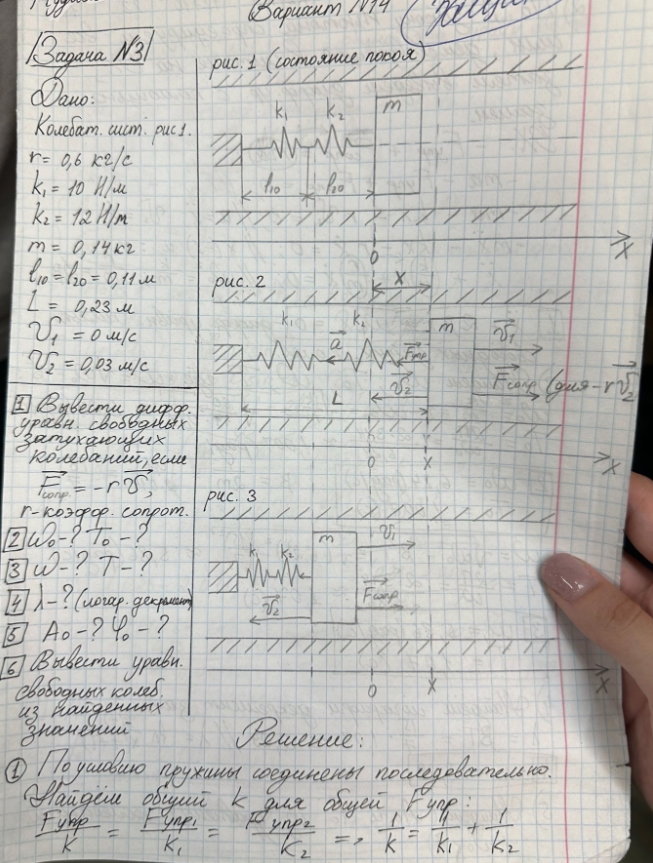 Вариант N14
Задача N3
Дано:
Колебат. сист. рис 1.
r = 0,6 кг/с
k₁ = 10 Н/м
k₂ = 12 Н/m
m = 0,14 кг
l₁₀ = l₂₀ = 0,11 м
L = 0,23 м
V₁ = 0 м/с
V₂ = 0,03 м/с
1 Вывести дифф.
уравн. свободных
затухающих
колебаний, если
Fсопр. = -rV,
r-коэфф. сопрот.
2 ω₀ -? T₀ -?
3 ω -? T -?
4 λ -? (логар. декремент)
5 A₀ -? φ₀ -?
6 Вывести уравн.
свободных колеб.
из найденных
значений
рис. 1 (состояние покоя)
k₁ k₂ m
l₁₀ l₁₀
0 X
рис. 2
X
k₁ k₂ m V₁
a Fупр
V₂ Fсопр (для -rV₂
L
0 X X
рис. 3
k₁ k₂ m V₁
V₂ Fсопр
0 X X
Решение:
1 По условию пружины соединены последовательно.
Найдём общий k для общей Fупр:
Fупр/k = Fупр₁/k₁ = Fупр₂/k₂ =, 1/k = 1/k₁ + 1/k₂